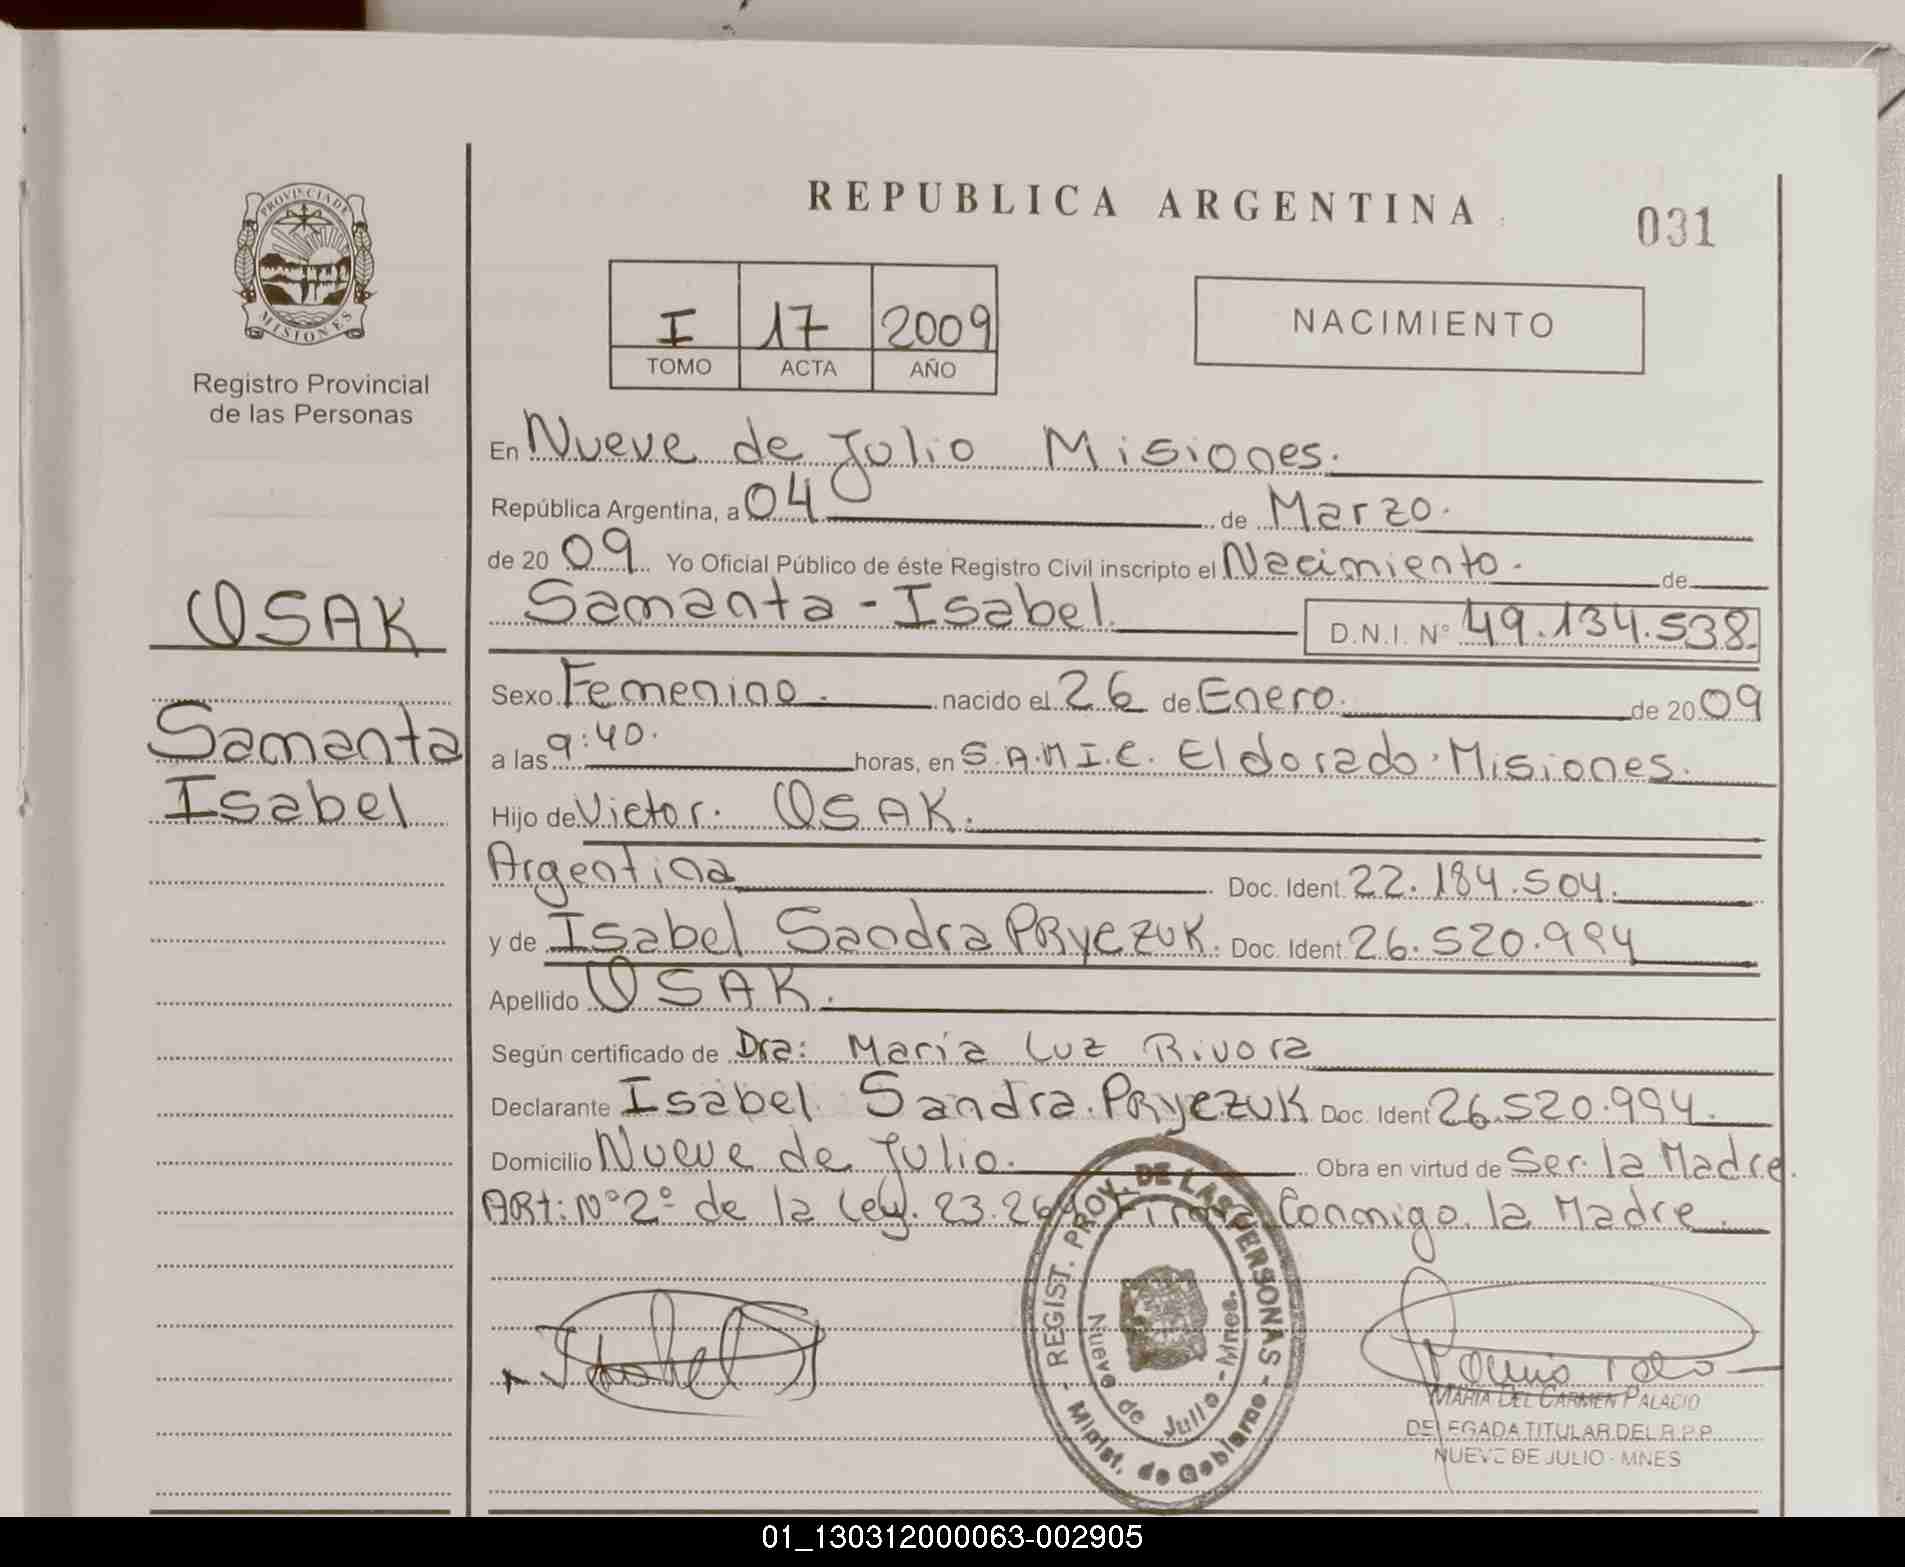 REPUBLICA ARGENTINA
031
PROVINCIA DE MISIONES
Registro Provincial
de las Personas
I 17 2009
TOMO ACTA AÑO
NACIMIENTO
En Nueve de Julio Misiones.
República Argentina, a 04 de Marzo.
de 2009 Yo Oficial Público de éste Registro Civil inscripto el Nacimiento. de
Samanta - Isabel. D.N.I. Nº 49.134.538
OSAK
Samanta
Isabel
Sexo Femenino. nacido el 26 de Enero. de 2009
a las 9:40. horas, en S.A.M.I.C. Eldorado. Misiones.
Hijo de Victor. OSAK.
Argentina Doc. Ident. 22.184.504.
y de Isabel Sandra PRYEZUK. Doc. Ident. 26.520.994
Apellido OSAK.
Según certificado de Dra: Maria Luz Rivora
Declarante Isabel Sandra. PRYEZUK Doc. Ident 26.520.994.
Domicilio Nueve de Julio. Obra en virtud de Ser. la Madre.
ARt: Nº 2º de la Ley. 23.264 Firma Conmigo. la Madre.
REGIST. PROV. DE LAS PERSONAS
Nueve de Julio - Mnes.
Minist. de Gobierno
Isabel
MARIA DEL CARMEN PALACIO
DELEGADA TITULAR DEL R.P.P.
NUEVE DE JULIO - MNES
01_130312000063-002905